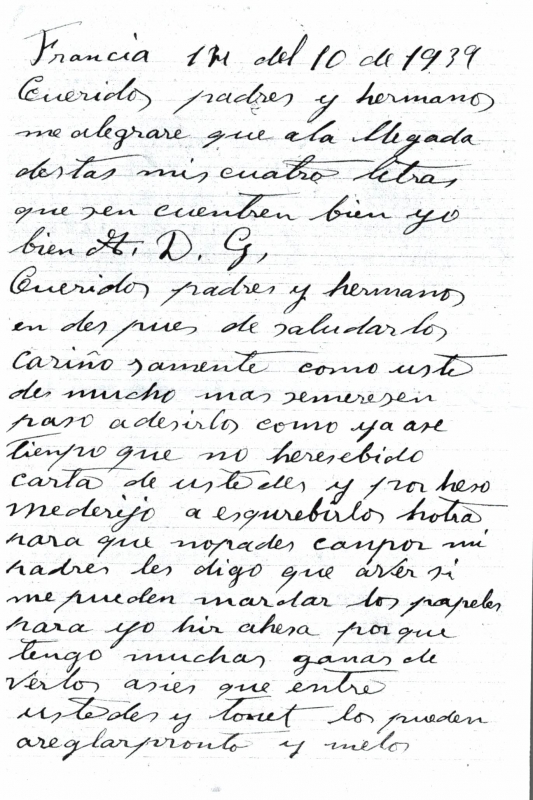 Francia 14 del 10 de 1939
Queridos padres y hermanos
me alegrare que ala llegada
destas mis cuatro letras
que sen cuentren bien yo
bien A. D. G,
Queridos padres y hermanos
en des pues de saludarlos
cariño samente como uste
des mucho mas semeresen
paso adesirlos como ya ase
tiempo que no heresebido
carta de ustedes y por heso
mederijo a esqurebirlos hotra
para que nopades canpor mi
padres les digo que aver si
me pueden mardar los papeles
para yo hir ahesa porque
tengo muchas ganas de
verlos asies que entre
ustedes y tonet los pueden
areglarpronto y melos